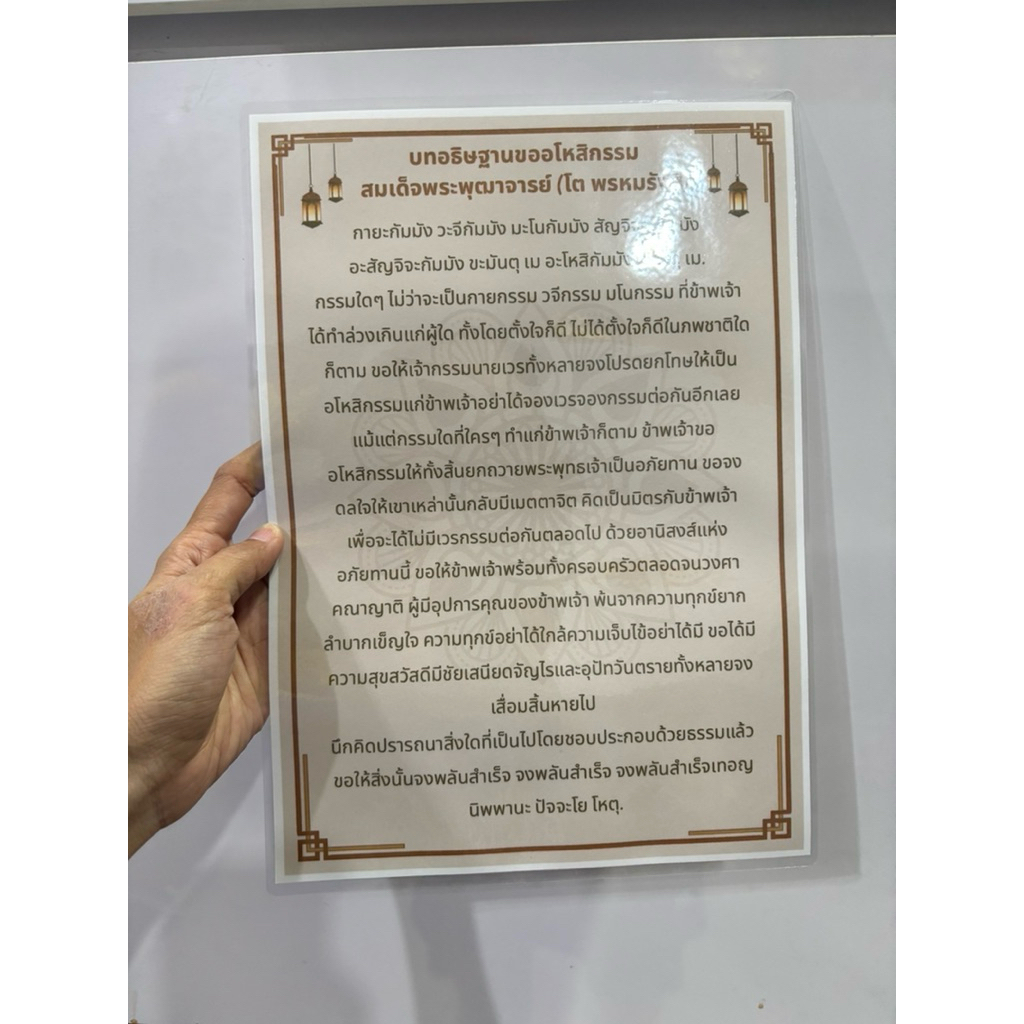 บทอธิษฐานขออโหสิกรรม
สมเด็จพระพุฒาจารย์ (โต
กายะกัมมัง วะจีกัมมัง มะโนกัมมัง
อะสัญจิจะกัมมัง ขะมันตุ เม อะโหสิกัมมัง เม.
กรรมใดๆ ไม่ว่าจะเป็นกายกรรม วจีกรรม มโนกรรม ที่ข้าพเจ้า
ได้ทำล่วงเกินแก่ผู้ใด ทั้งโดยตั้งใจก็ดี ไม่ได้ตั้งใจก็ดีในภพชาติใด
ก็ตาม ขอให้เจ้ากรรมนายเวรทั้งหลายจงโปรดยกโทษให้เป็น
อโหสิกรรมแก่ข้าพเจ้าอย่าได้จองเวรจองกรรมต่อกันอีกเลย
แม้แต่กรรมใดที่ใครๆ ทำแก่ข้าพเจ้าก็ตาม ข้าพเจ้าขอ
อโหสิกรรมให้ทั้งสิ้นยกถวายพระพุทธเจ้าเป็นอภัยทาน ขอจง
ดลใจให้เขาเหล่านั้นกลับมีเมตตาจิต คิดเป็นมิตรกับข้าพเจ้า
เพื่อจะได้ไม่มีเวรกรรมต่อกันตลอดไป ด้วยอานิสงส์แห่ง
อภัยทานนี้ ขอให้ข้าพเจ้าพร้อมทั้งครอบครัวตลอดจนวงศา
คณาญาติ ผู้มีอุปการคุณของข้าพเจ้า พ้นจากความทุกข์ยาก
ลำบากเข็ญใจ ความทุกข์อย่าได้ใกล้ความเจ็บไข้อย่าได้มี ขอได้มี
ความสุขสวัสดีมีชัยเสนียดจัญไรและอุปัทวันตรายทั้งหลายจง
เสื่อมสิ้นหายไป
นึกคิดปรารถนาสิ่งใดที่เป็นไปโดยชอบประกอบด้วยธรรมแล้ว
ขอให้สิ่งนั้นจงพลันสำเร็จ จงพลันสำเร็จ จงพลันสำเร็จเทอญ
นิพพานะ ปัจจะโย โหตุ.